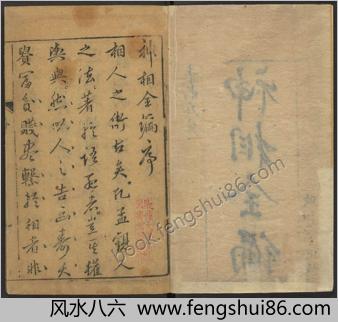 神相全編
神相全編序
相人之術古矣孔孟觀人
之法著於語孟者豈權
輿與然以人之吉凶壽夭
貴富貧賤盡繫於相者非
book.fengshui86.com
风水八六 www.fengshui86.com